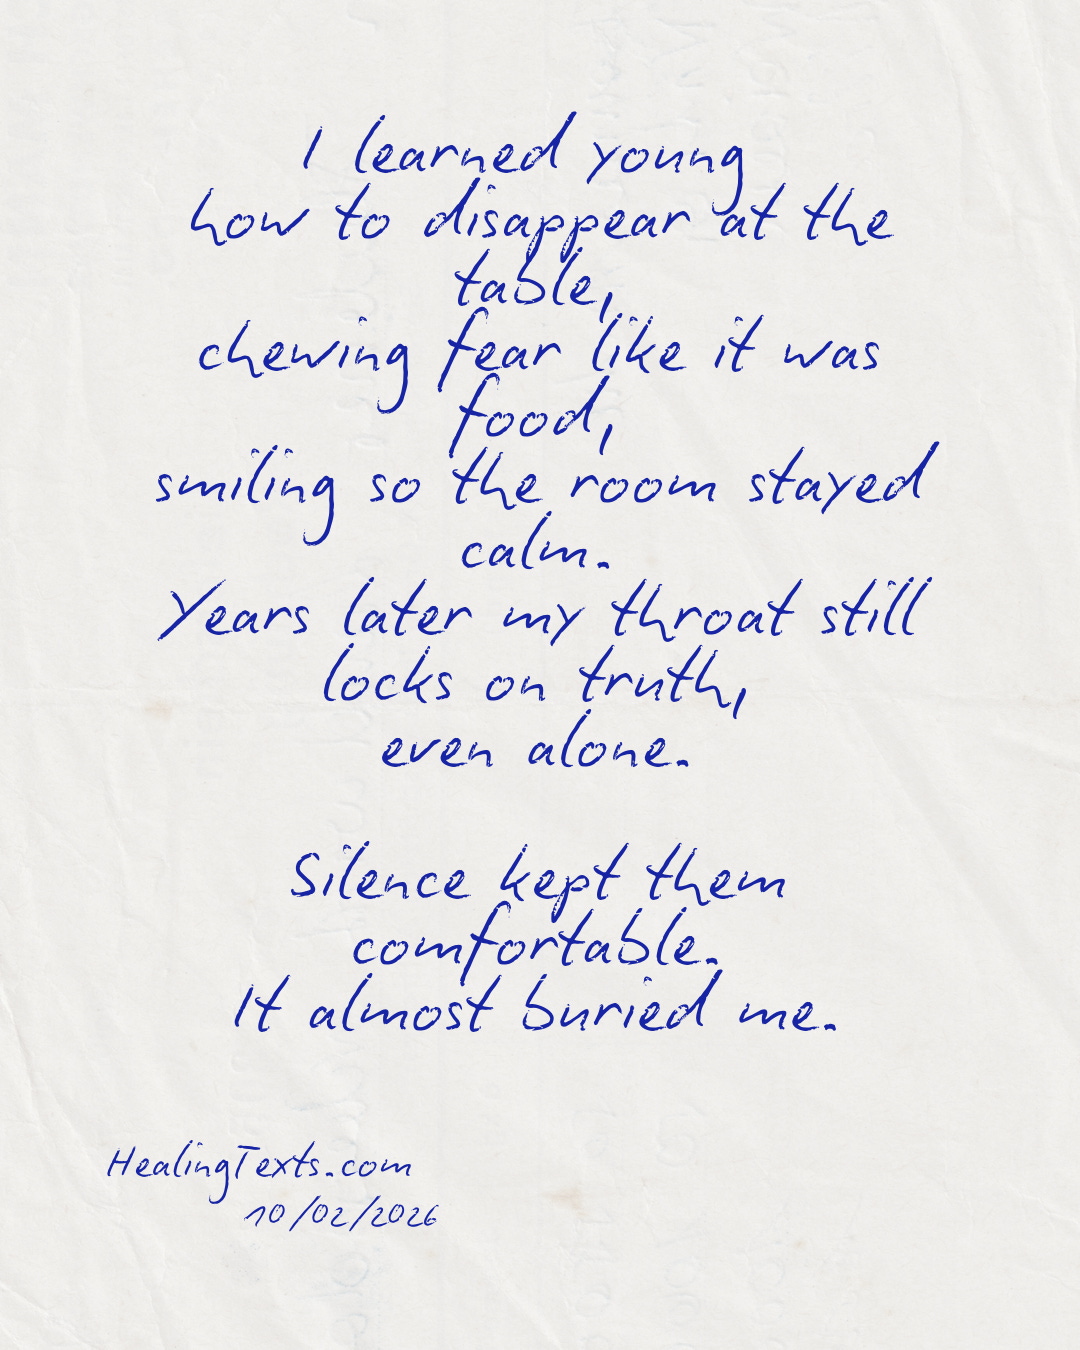 I learned young
how to disappear at the
table,
chewing fear like it was
food,
smiling so the room stayed
calm.
Years later my throat still
locks on truth,
even alone.
Silence kept them
comfortable.
It almost buried me.
HealingTexts.com
10/02/2026